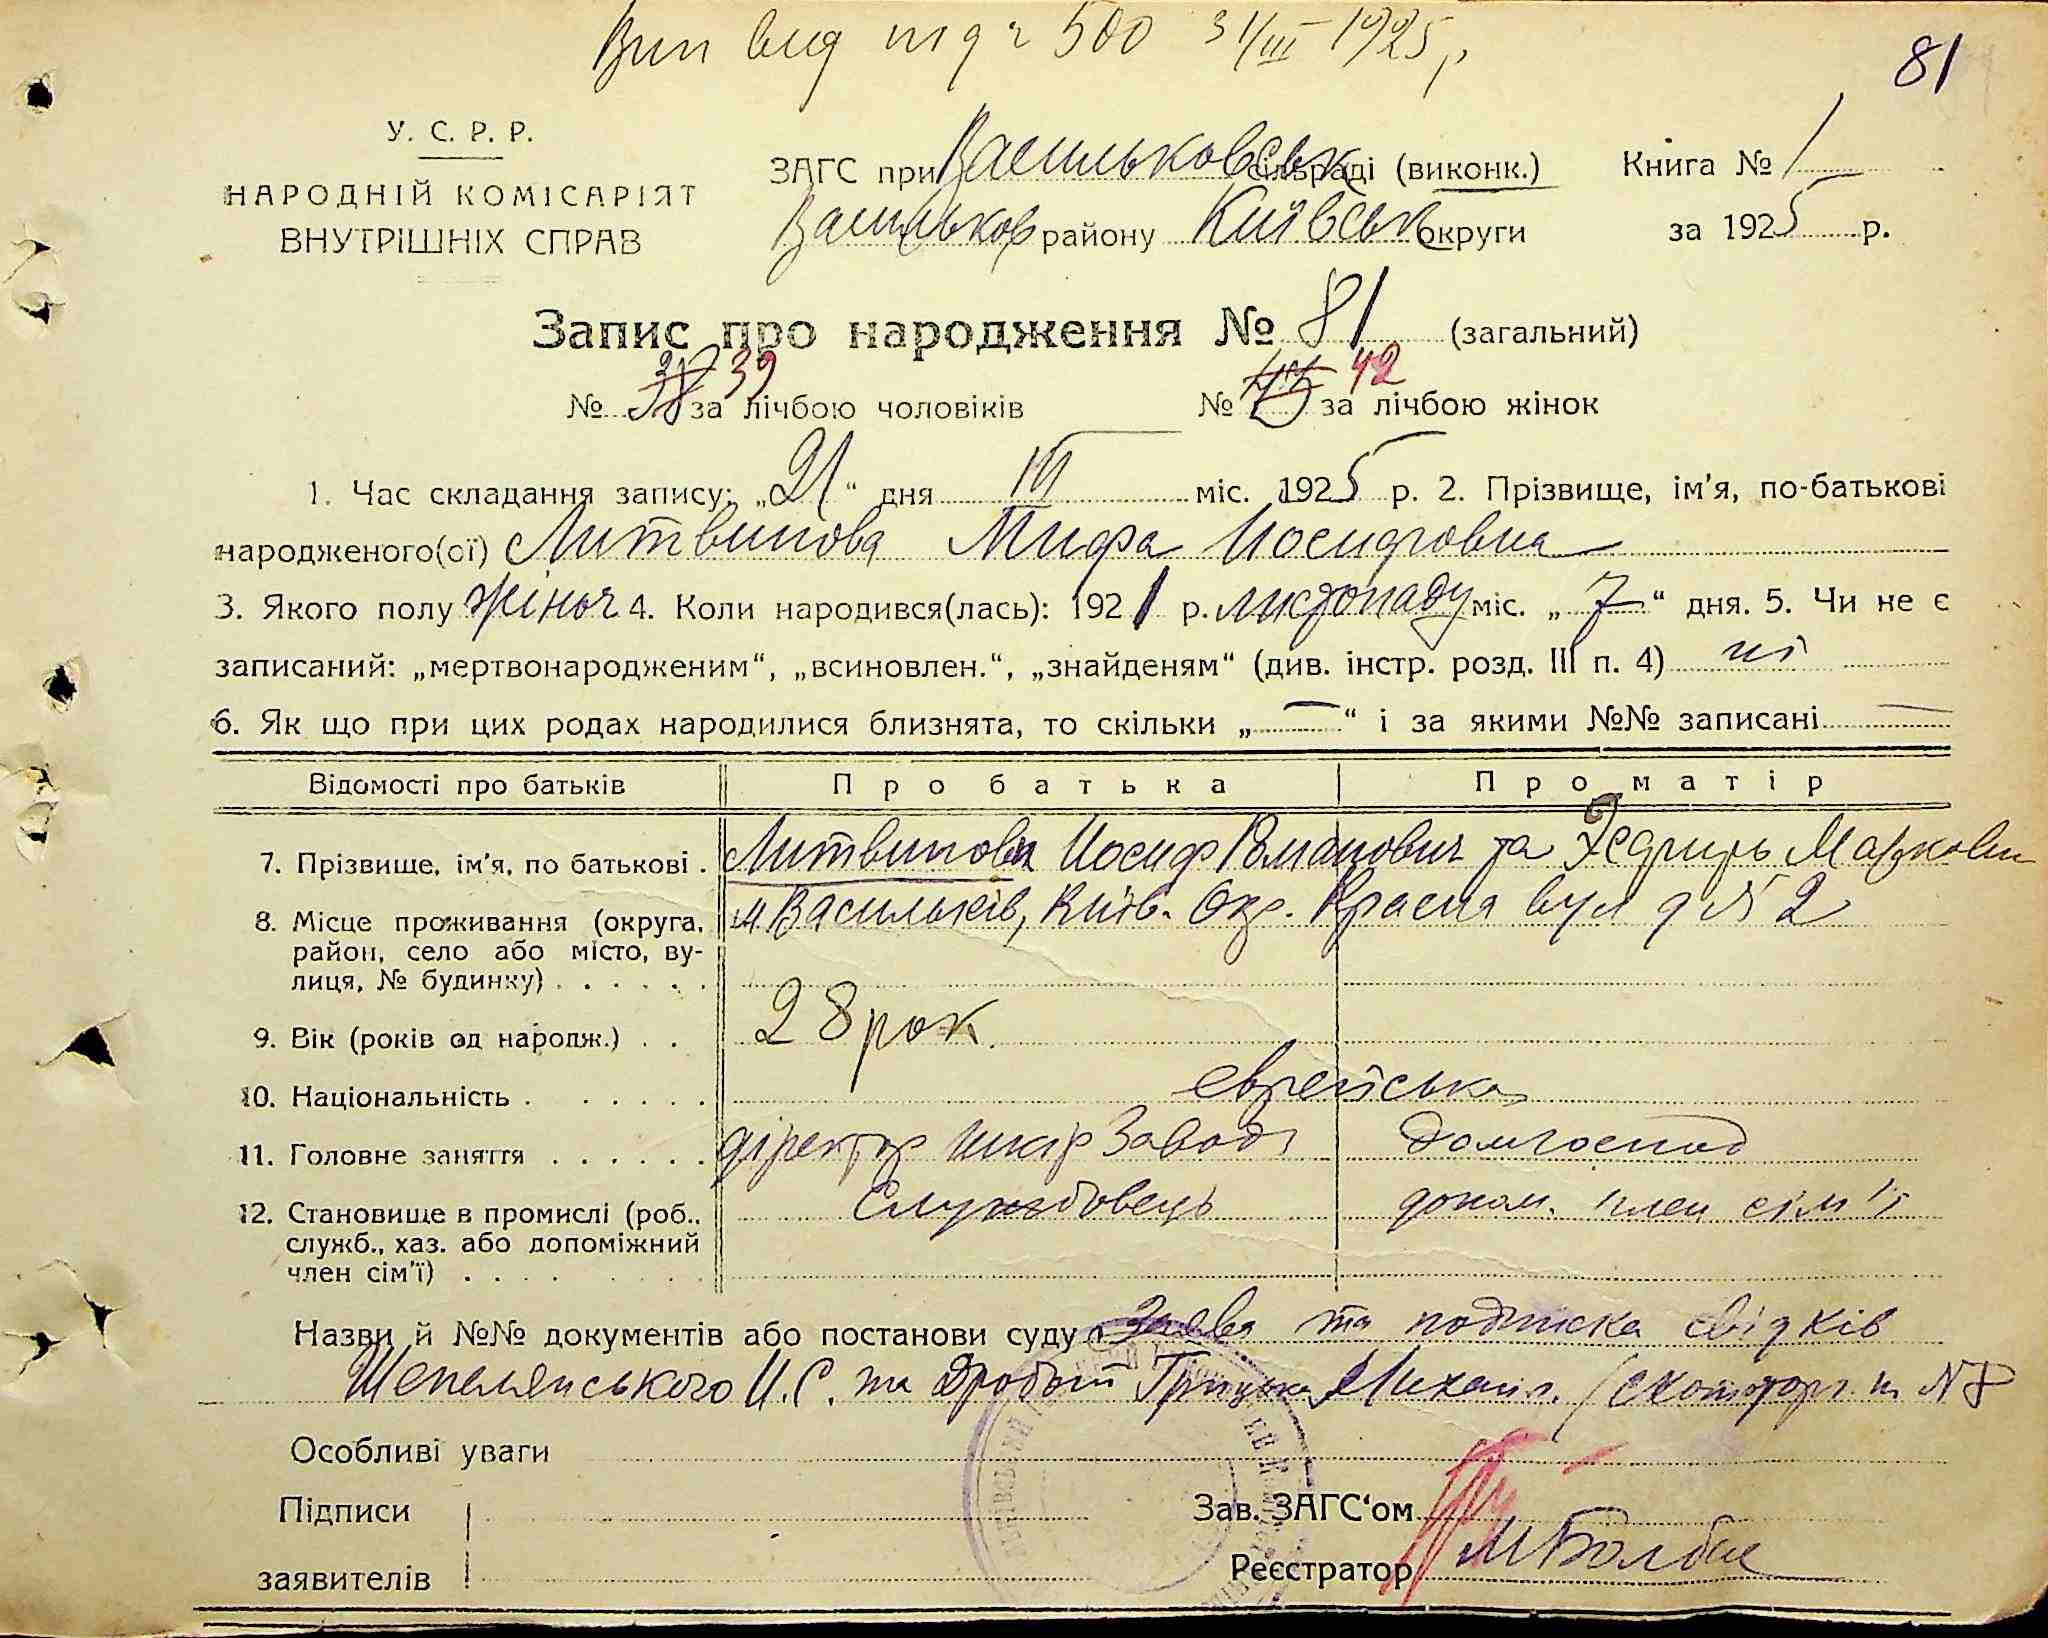 Вип вид 500 31/III 1925 р
81
У. С. Р. Р.
НАРОДНІЙ КОМІСАРІЯТ
ВНУТРІШНІХ СПРАВ
ЗАГС при Васильковськ сільраді (виконк.) Книга № 1
Васильков району Київськ округи за 1925 р.
Запис про народження № 81 (загальний)
№ 38 39 за лічбою чоловіків № 43 42 за лічбою жінок
1. Час складання запису: „21“ дня III міс. 1925 р. 2. Прізвище, ім’я, по-батькові
народженого(ої) Литвинова Мифа Иосифовна
3. Якого полу жіноч 4. Коли народився(лась): 1921 р. листопаду міс. „7“ дня. 5. Чи не є
записаний: „мертвонародженим“, „всиновлен.“, „знайденям“ (див. інстр. розд. III п. 4) ні
6. Як що при цих родах народилися близнята, то скільки „—“ і за якими №№ записані —
Відомості про батьків Про батька Про матір
7. Прізвище, ім’я, по батькові . Литвинови Иосиф Романович та Марковн
8. Місце проживання (округа, м. Васильків, Київ. Окр. Красна вул д № 2
район, село або місто, ву-
лиця, № будинку) . . . . . .
9. Вік (років од народж.) . . 28 рок.
10. Національність . . . . . . . еврейська
11. Головне заняття . . . . . . діректор шкір Завода домгоспод
12. Становище в промислі (роб., Службовець допом. член сім’ї
служб., хаз. або допоміжний
член сім’ї) . . . .
Назви й №№ документів або постанови суду Заява та подписка свідків
Шепелянського И. С. та Грицька Михайл.
Особливі уваги
Підписи Зав. ЗАГС‘ом
заявителів Реєстратор